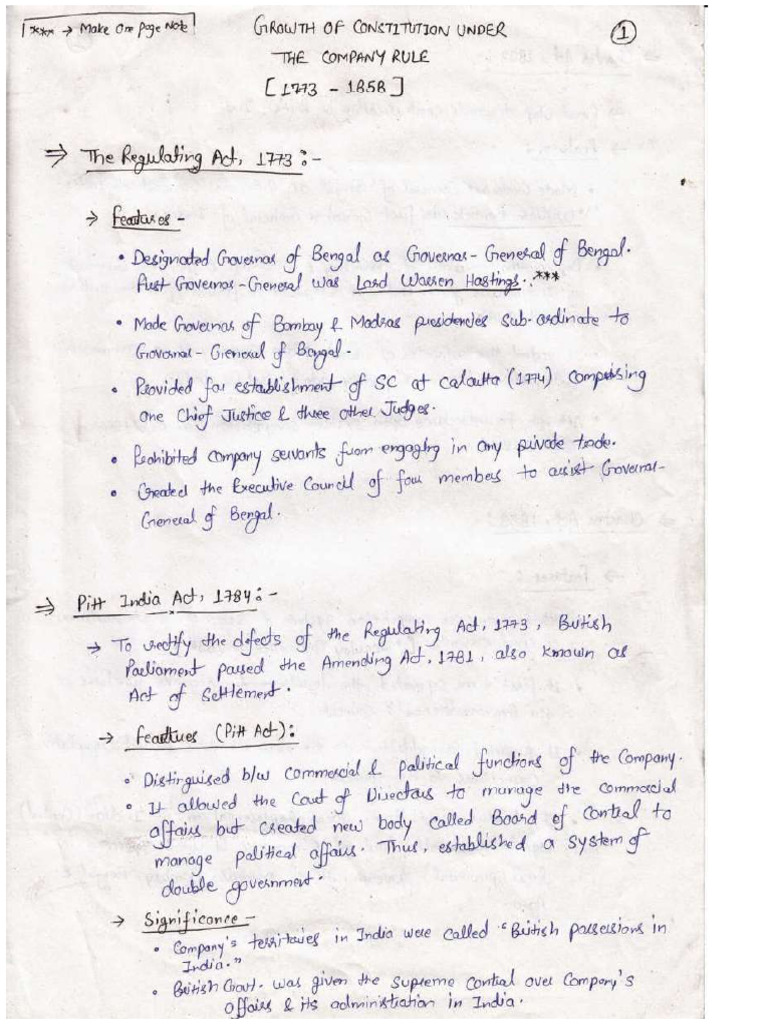 *** → Make One page Note
GROWTH OF CONSTITUTION UNDER
THE COMPANY RULE
[1773 - 1858]
1
⇒ The Regulating Act, 1773:-
→ Features -
• Designated Governor of Bengal as Governor-General of Bengal.
First Governor-General was Lord Warren Hastings. ***
• Made Governor of Bombay & Madras presidencies sub-ordinate to
Governor-General of Bengal.
• Provided for establishment of SC at Calcutta (1774) comprising
One Chief Justice & three other Judges.
• Prohibited company servants from engaging in any private trade.
• Created the Executive Council of four members to assist Governor-
General of Bengal.
⇒ Pitt India Act, 1784:-
→ To rectify the defects of the Regulating Act, 1773, British
Parliament passed the Amending Act, 1781, also known as
Act of Settlement.
→ Features (Pitt Act):
• Distinguised b/w commercial & political functions of the Company.
• It allowed the Court of Directors to manage the commercial
affairs but created new body called Board of Control to
manage political affairs. Thus, established a system of
double government.
→ Significance -
• Company's territories in India were called "British possessions in
India."
• British Govt. was given the supreme control over Company's
affairs & its administration in India.